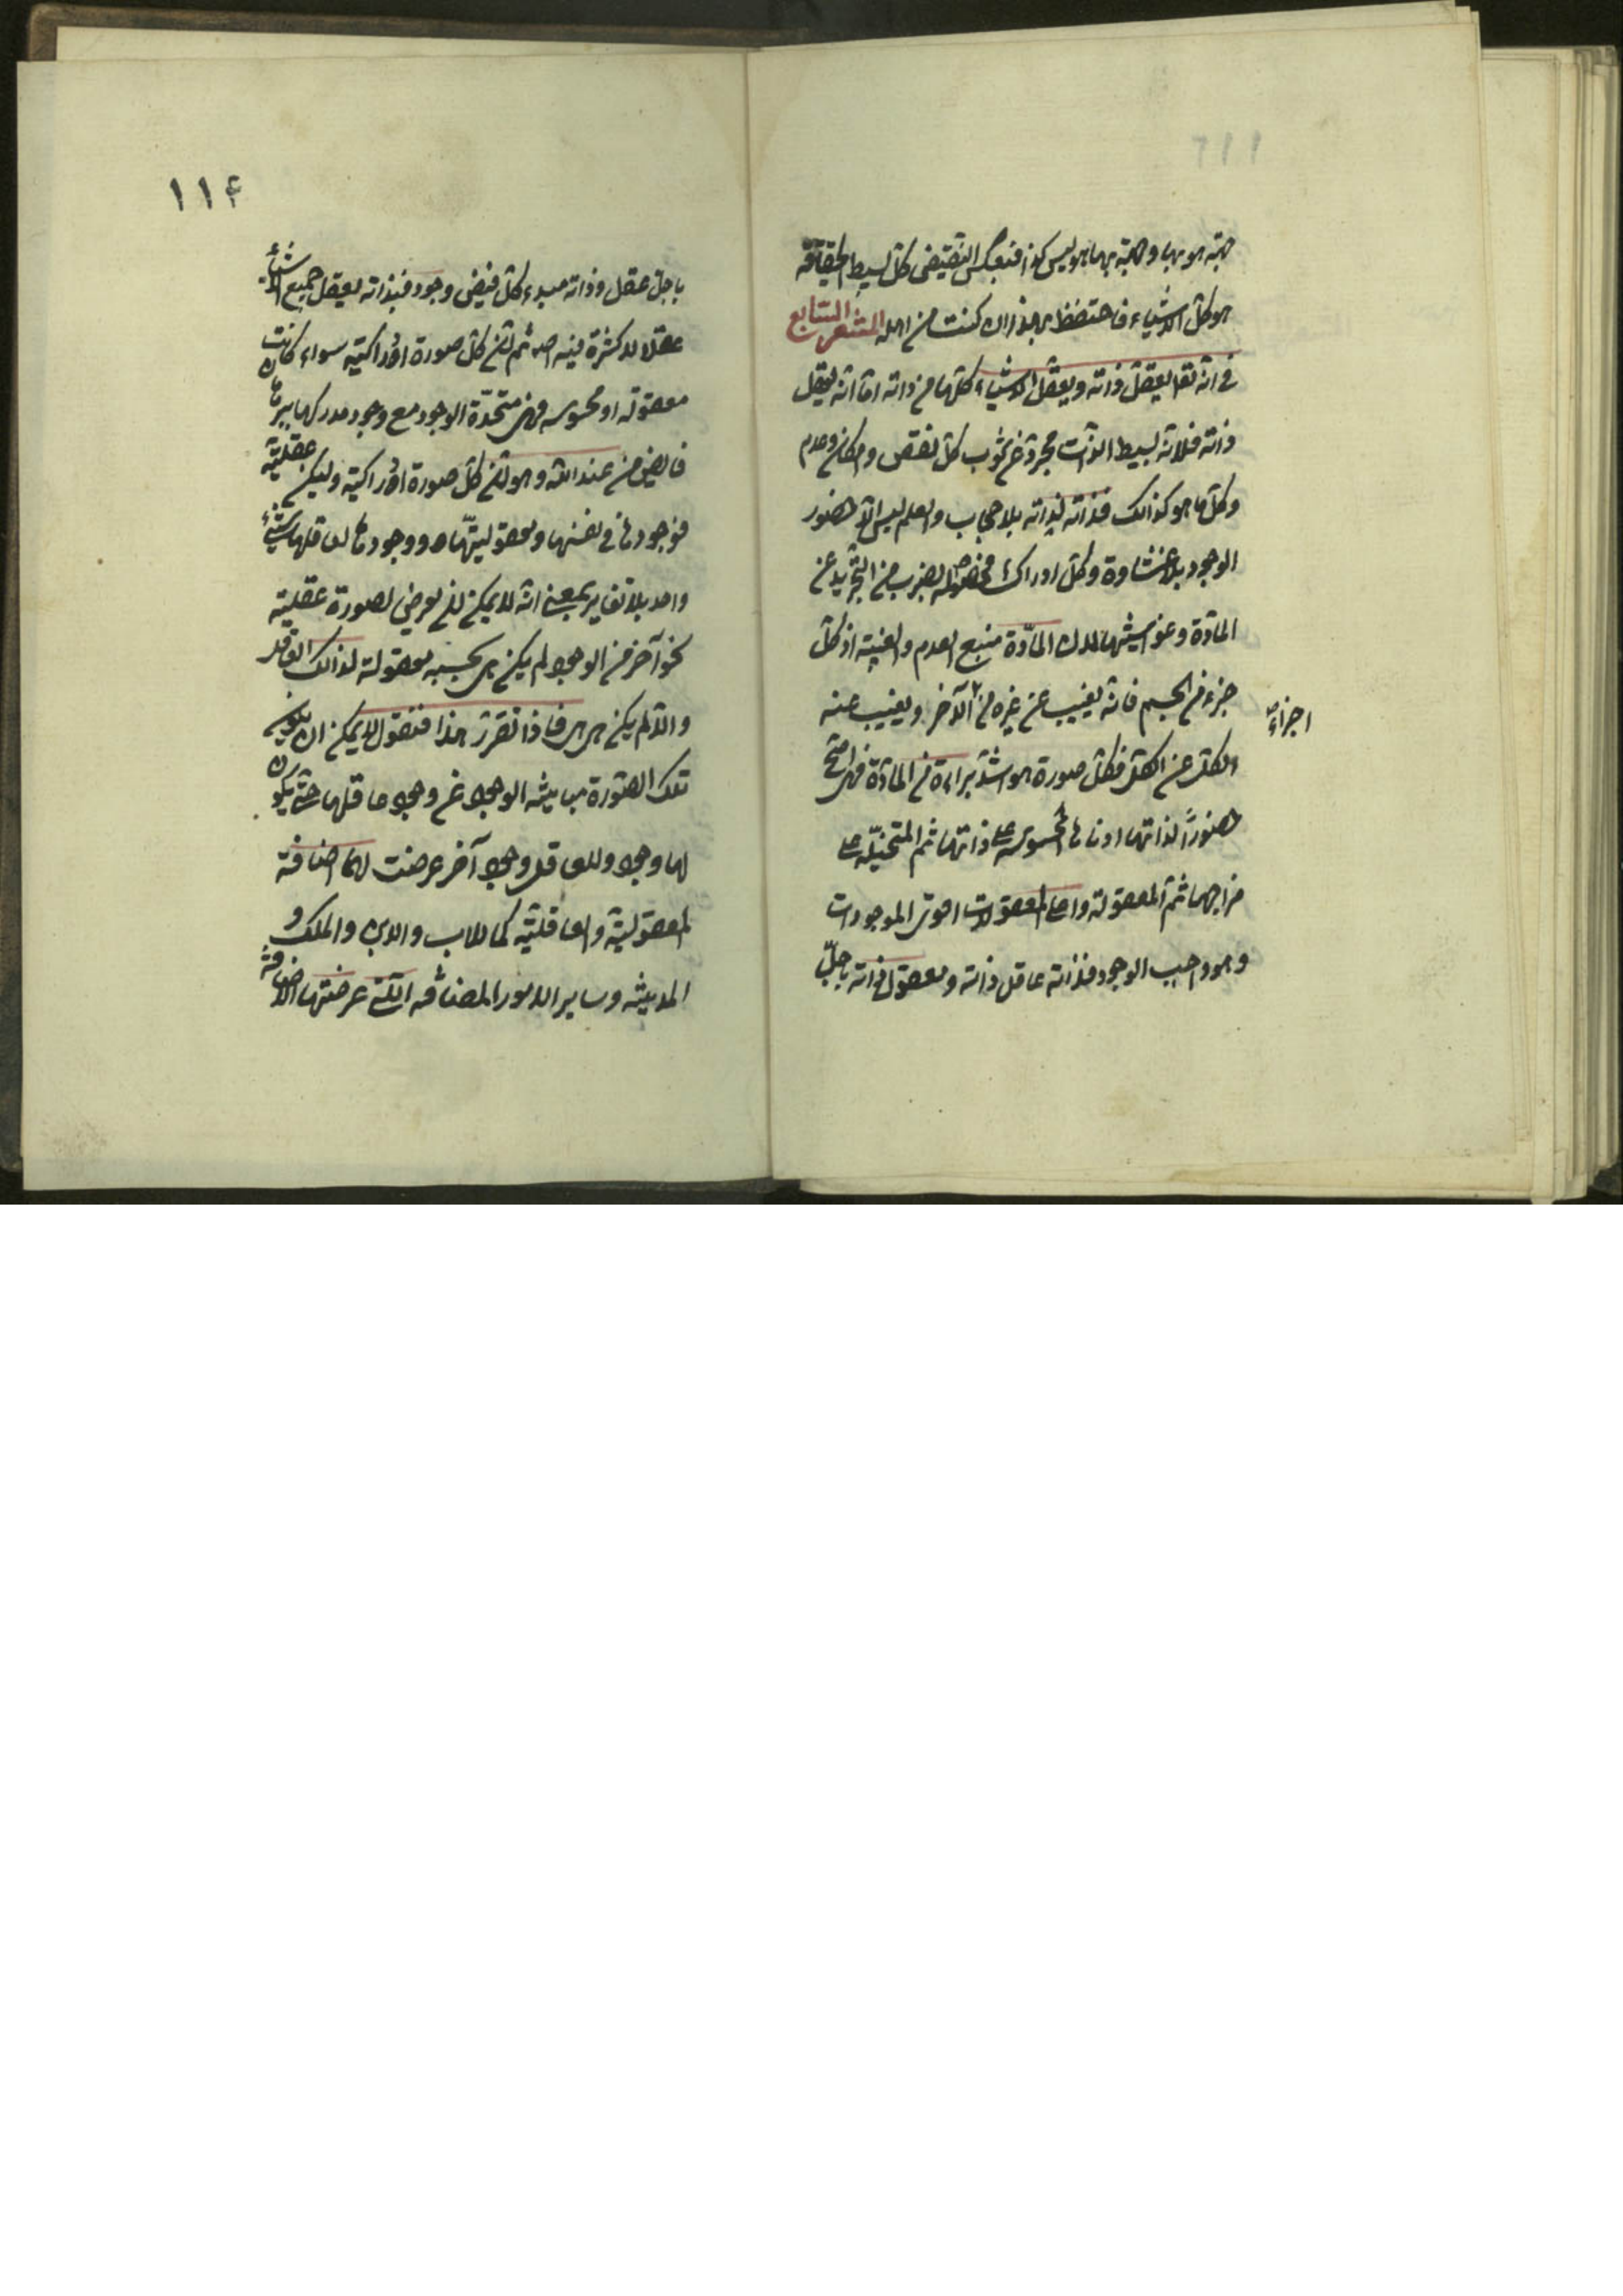 جهة هو بها وجهة بها هو ليس كذا فبعكس النقيض كل بسيط الحقيقة
هو كل الاشياء فاحتفظ بهذا ان كنت من اهله المشعر السابع
في انه تعا يعقل ذاته ويعقل الاشياء كلها من ذاته اما انه يعقل
ذاته فلانه بسيط الذات مجرد عن شوب كل نقص وامكان وعدم
وكل ما هو كذلك فذاته لذاته بلا حجاب والعلم ليس الا حضور
الوجود بلا غشاوة وكل ادراك فحصوله بضرب من التجريد عن
المادة وغواشيها لان المادة منبع العدم والغيبة اذ كل
جزء من الجسم فانه يغيب عن غيره من الآخر ويغيب عنه
اجزاء
الكل عن الكل فكل صورة هو اشد براءة من المادة فهى اصح
حضورا لذاتها ادناها المحسوسة على ذاتها ثم المتخيلة على
مراتبها ثم المعقولة واعلى المعقولات اقوى الموجودات
وهو واجب الوجود فذاته عاقل ذاته ومعقول ذاته باجل
١١٤
باجل عقل وذاته مبدء كل فيض وجود فبذاته يعقل جميع الاشياء
عقلا لا كثرة فيه اصلا ثم ان كل صورة ادراكية سواء كانت
معقولة او محسوسة فهى متحدة الوجود مع وجود مدركها ببرهان
فايض من عند الله وهو ان كل صورة ادراكية وليكن عقلية
فوجودها في نفسها ومعقوليتها ووجودها لعاقلها شىء
واحد بلا تغاير بمعنى انه لا يمكن ان يفرض لصورة عقلية
نحو آخر من الوجود لم يكن هى بحسبه معقولة لذلك العاقل
والا لم يكن هى هى فاذا تقرر هذا فنقول لا يمكن ان يكون
تلك الصورة مباينة الوجود عن وجود عاقلها حتى يكون
لها وجود وللعاقل وجود آخر عرضت لهما اضافة
المعقولية والعاقلية كما للاب والابن والملك و
المدينة وساير الامور المضافة التى عرضتها الاضافة